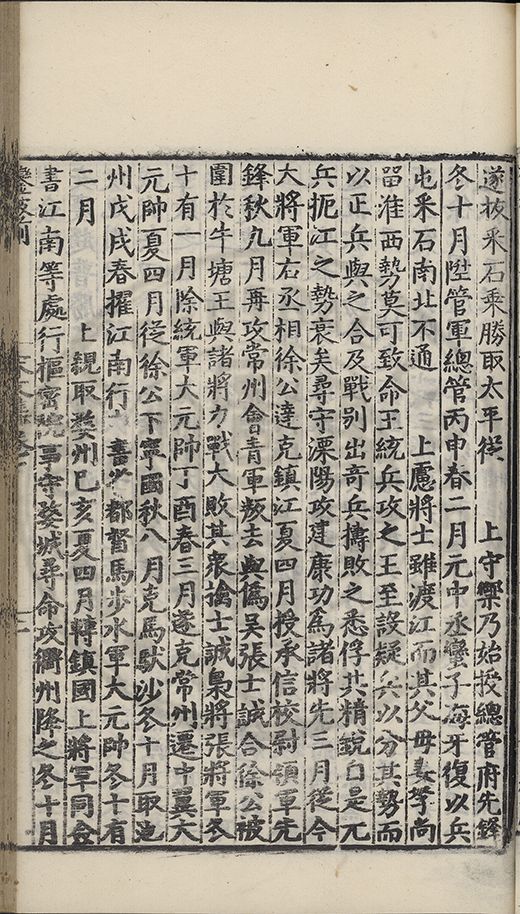 遂抜釆石乘勝取太平從　上守禦乃始授總管府先鋒
冬十月陞管軍總管丙申春二月元中丞蠻子海牙復以兵
屯釆石南北不通　上慮將士雖渡江而其父母妻孥尚
畱淮西勢莫可致命王統兵攻之王至設疑兵以分其勢而
以正兵與之合及戰别出奇兵擣敗之悉俘其精銳自是元
兵扼江之勢衰矣尋守溧陽攻建康功爲諸將先三月從今
大將軍右丞相徐公達克鎮江夏四月授承信校尉領軍先
鋒秋九月再攻常州會青軍叛去與僞吳張士誠合徐公被
圍於牛塘王與諸將力戰大敗其衆擒士誠梟將張將軍冬
十有一月除統軍大元帥丁酉春三月遂克常州遷中翼大
元帥夏四月從徐公下寧國秋八月克馬馱沙冬十月取池
州戊戌春擢江南行書都督馬步水軍大元帥冬十有
二月　上親取婺州已亥夏四月轉鎮國上將軍同僉
書江南等處行樞密院事守婺城尋命攻衢州降之冬十月